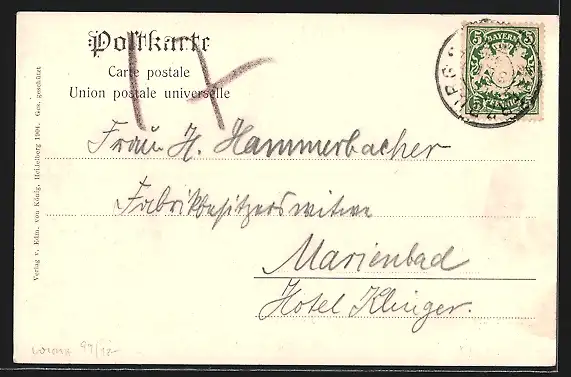 Postkarte
Carte postale
Union postale universelle
5 BAYERN 5
5 PFENNIG 5
Frau H. Hammerbacher
Fabrikbesitzerswitwe
Marienbad
Hotel Klinger.
Verlag v. Edm. von König, Heidelberg 1904. Ges. geschützt